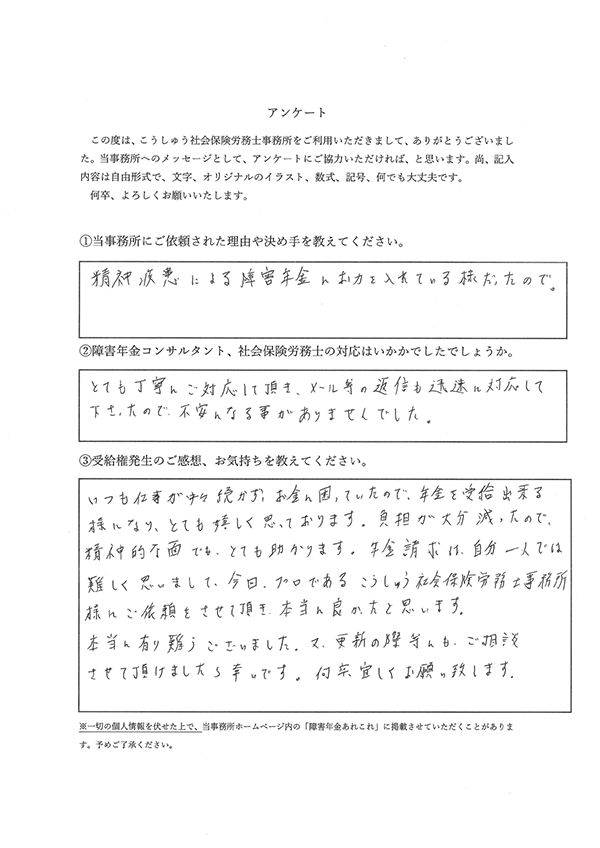 アンケート
この度は、こうしゅう社会保険労務士事務所をご利用いただきまして、ありがとうございまし
た。当事務所へのメッセージとして、アンケートにご協力いただければ、と思います。尚、記入
内容は自由形式で、文字、オリジナルのイラスト、数式、記号、何でも大丈夫です。
何卒、よろしくお願いいたします。
①当事務所にご依頼された理由や決め手を教えてください。
精神疾患による障害年金にお力を入れている様だったので。
②障害年金コンサルタント、社会保険労務士の対応はいかがでしたでしょうか。
とても丁寧にご対応して頂き、メール等の返信も迅速に対応して
下さったので、不安になる事がありませんでした。
③受給権発生のご感想、お気持ちを教えてください。
いつも仕事が中々続かず、お金に困っていたので、年金を受給出来る
様になり、とても嬉しく思っております。負担が大分減ったので、
精神的な面でも、とても助かります。年金請求は、自分一人では
難しく思いまして、今回、プロである こうしゅう社会保険労務士事務所
様にご依頼をさせて頂き、本当に良かったと思います。
本当に有り難うございました。又、更新の際等にも、ご相談
させて頂けましたら幸いです。何卒宜しくお願い致します。
※一切の個人情報を伏せた上で、当事務所ホームページ内の「障害年金あれこれ」に掲載させていただくことがありま
す。予めご了承ください。